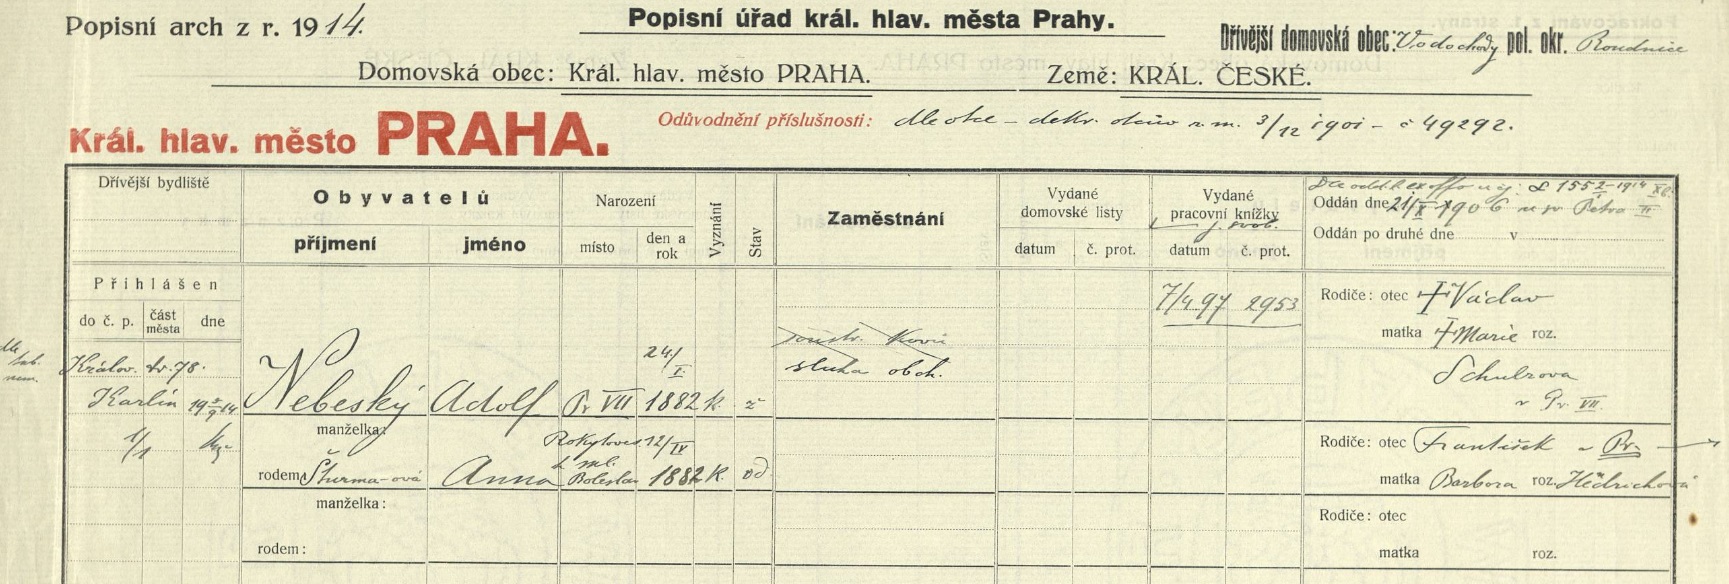 Popisní arch z r. 1914.
Popisní úřad král. hlav. města Prahy.
Dřívější domovská obec: Vodochody pol. okr. Roudnice
Domovská obec: Král. hlav. město PRAHA. Země: KRÁL. ČESKÉ.
Král. hlav. město PRAHA.
Odůvodnění příslušnosti: dle otce – dekr. 3/12 1901 – č 49292.
Dřívější bydliště
Obyvatelů
příjmení jméno
Narození
místo den a rok
Vyznání
Stav
Zaměstnání
Vydané domovské listy
datum č. prot.
Vydané pracovní knížky
j. svob.
datum č. prot.
1552–1914
Oddán dne 21/X 1906 u sv Petra II
Oddán po druhé dne v
Přihlášen
do č. p. část města dne
7/4.97 2953
Rodiče: otec † Václav
matka † Marie roz.
Schulzova
v Pr. VII.
dle
Králov. tř. 78.
Karlín 19 5/9 14
Nebeský Adolf Pr VII 24/I. 1882 k. ž
sluha obch.
1/1
manželka:
rodem Šturma-ová Anna
Boleslav 12/IV 1882 k.
Rodiče: otec František v Pr.
matka Barbora roz. Hědrichová
manželka:
rodem:
Rodiče: otec
matka roz.